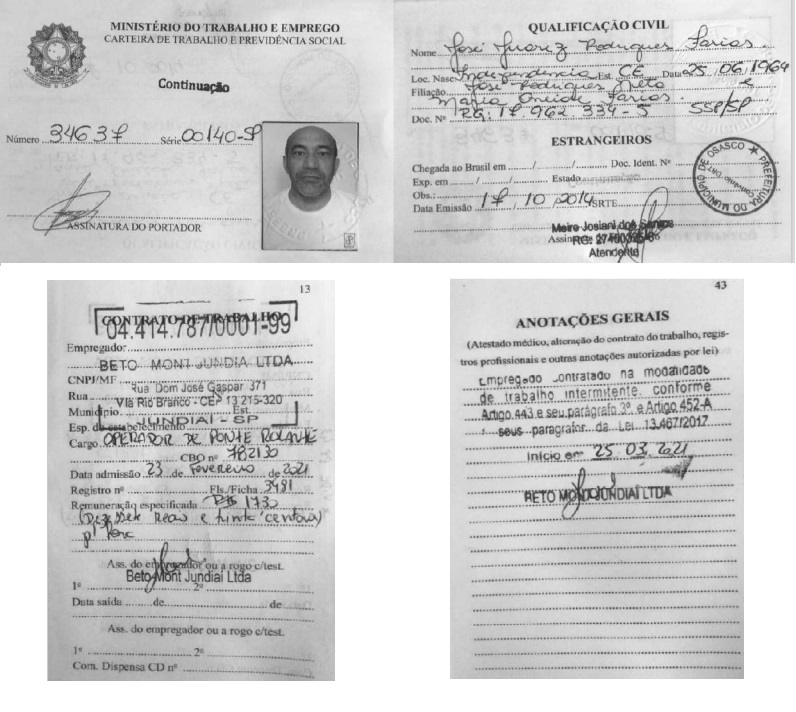 MINISTÉRIO DO TRABALHO E EMPREGO
CARTEIRA DE TRABALHO E PREVIDÊNCIA SOCIAL
Continuação
Número 34637 Série 00140-SP
ASSINATURA DO PORTADOR
QUALIFICAÇÃO CIVIL
Nome José Juarez Rodrigues Farias.
Loc. Nasc Independencia Est. CE Data 25/06/1964
Filiação José Rodrigues Neto e
Maria Oneide Farias.
Doc. Nº RG: 17.962.334-5 SSP/SP
ESTRANGEIROS
Chegada ao Brasil em / / Doc. Ident. Nº
Exp. em / / Estado
Obs.:
Data Emissão 17/10/2014 SRTE
Meire Josiani dos Santos
Assin
RG:
Atendente
PREFEITURA DO MUNICÍPIO DE OSASCO
13
CONTRATO DE TRABALHO
04.414.787/0001-99
Empregador
BETO MONT JUNDIA LTDA
CNPJ/MF
Rua Rua Dom José Gaspar 371
Vila Rio Branco - CEP 13 215-320
Município Est.
JUNDIAÍ - SP
Esp. do estabelecimento
Cargo OPERADOR DE PONTE ROLANTE
CBO nº 782130
Data admissão 23 de Fevereiro de 2021
Registro nº Fls./Ficha 3481
Remuneração especificada R$ 17,30
(Dezesete Reais e trinta centavos)
p/ hora
Ass. do empregador ou a rogo c/test.
Beto Mont Jundiaí Ltda
1º 2º
Data saída de de
Ass. do empregador ou a rogo c/test.
1º 2º
Com. Dispensa CD nº
43
ANOTAÇÕES GERAIS
(Atestado médico, alteração do contrato do trabalho, regis-
tros profissionais e outras anotações autorizadas por lei)
Empregado contratado na modalidade
de trabalho intermitente, conforme
Artigo 443 e seu parágrafo 3º e Artigo 452-A
seus paragrafos da Lei 13.467/2017
Início em 25 03 2021
BETO MONT JUNDIAI LTDA